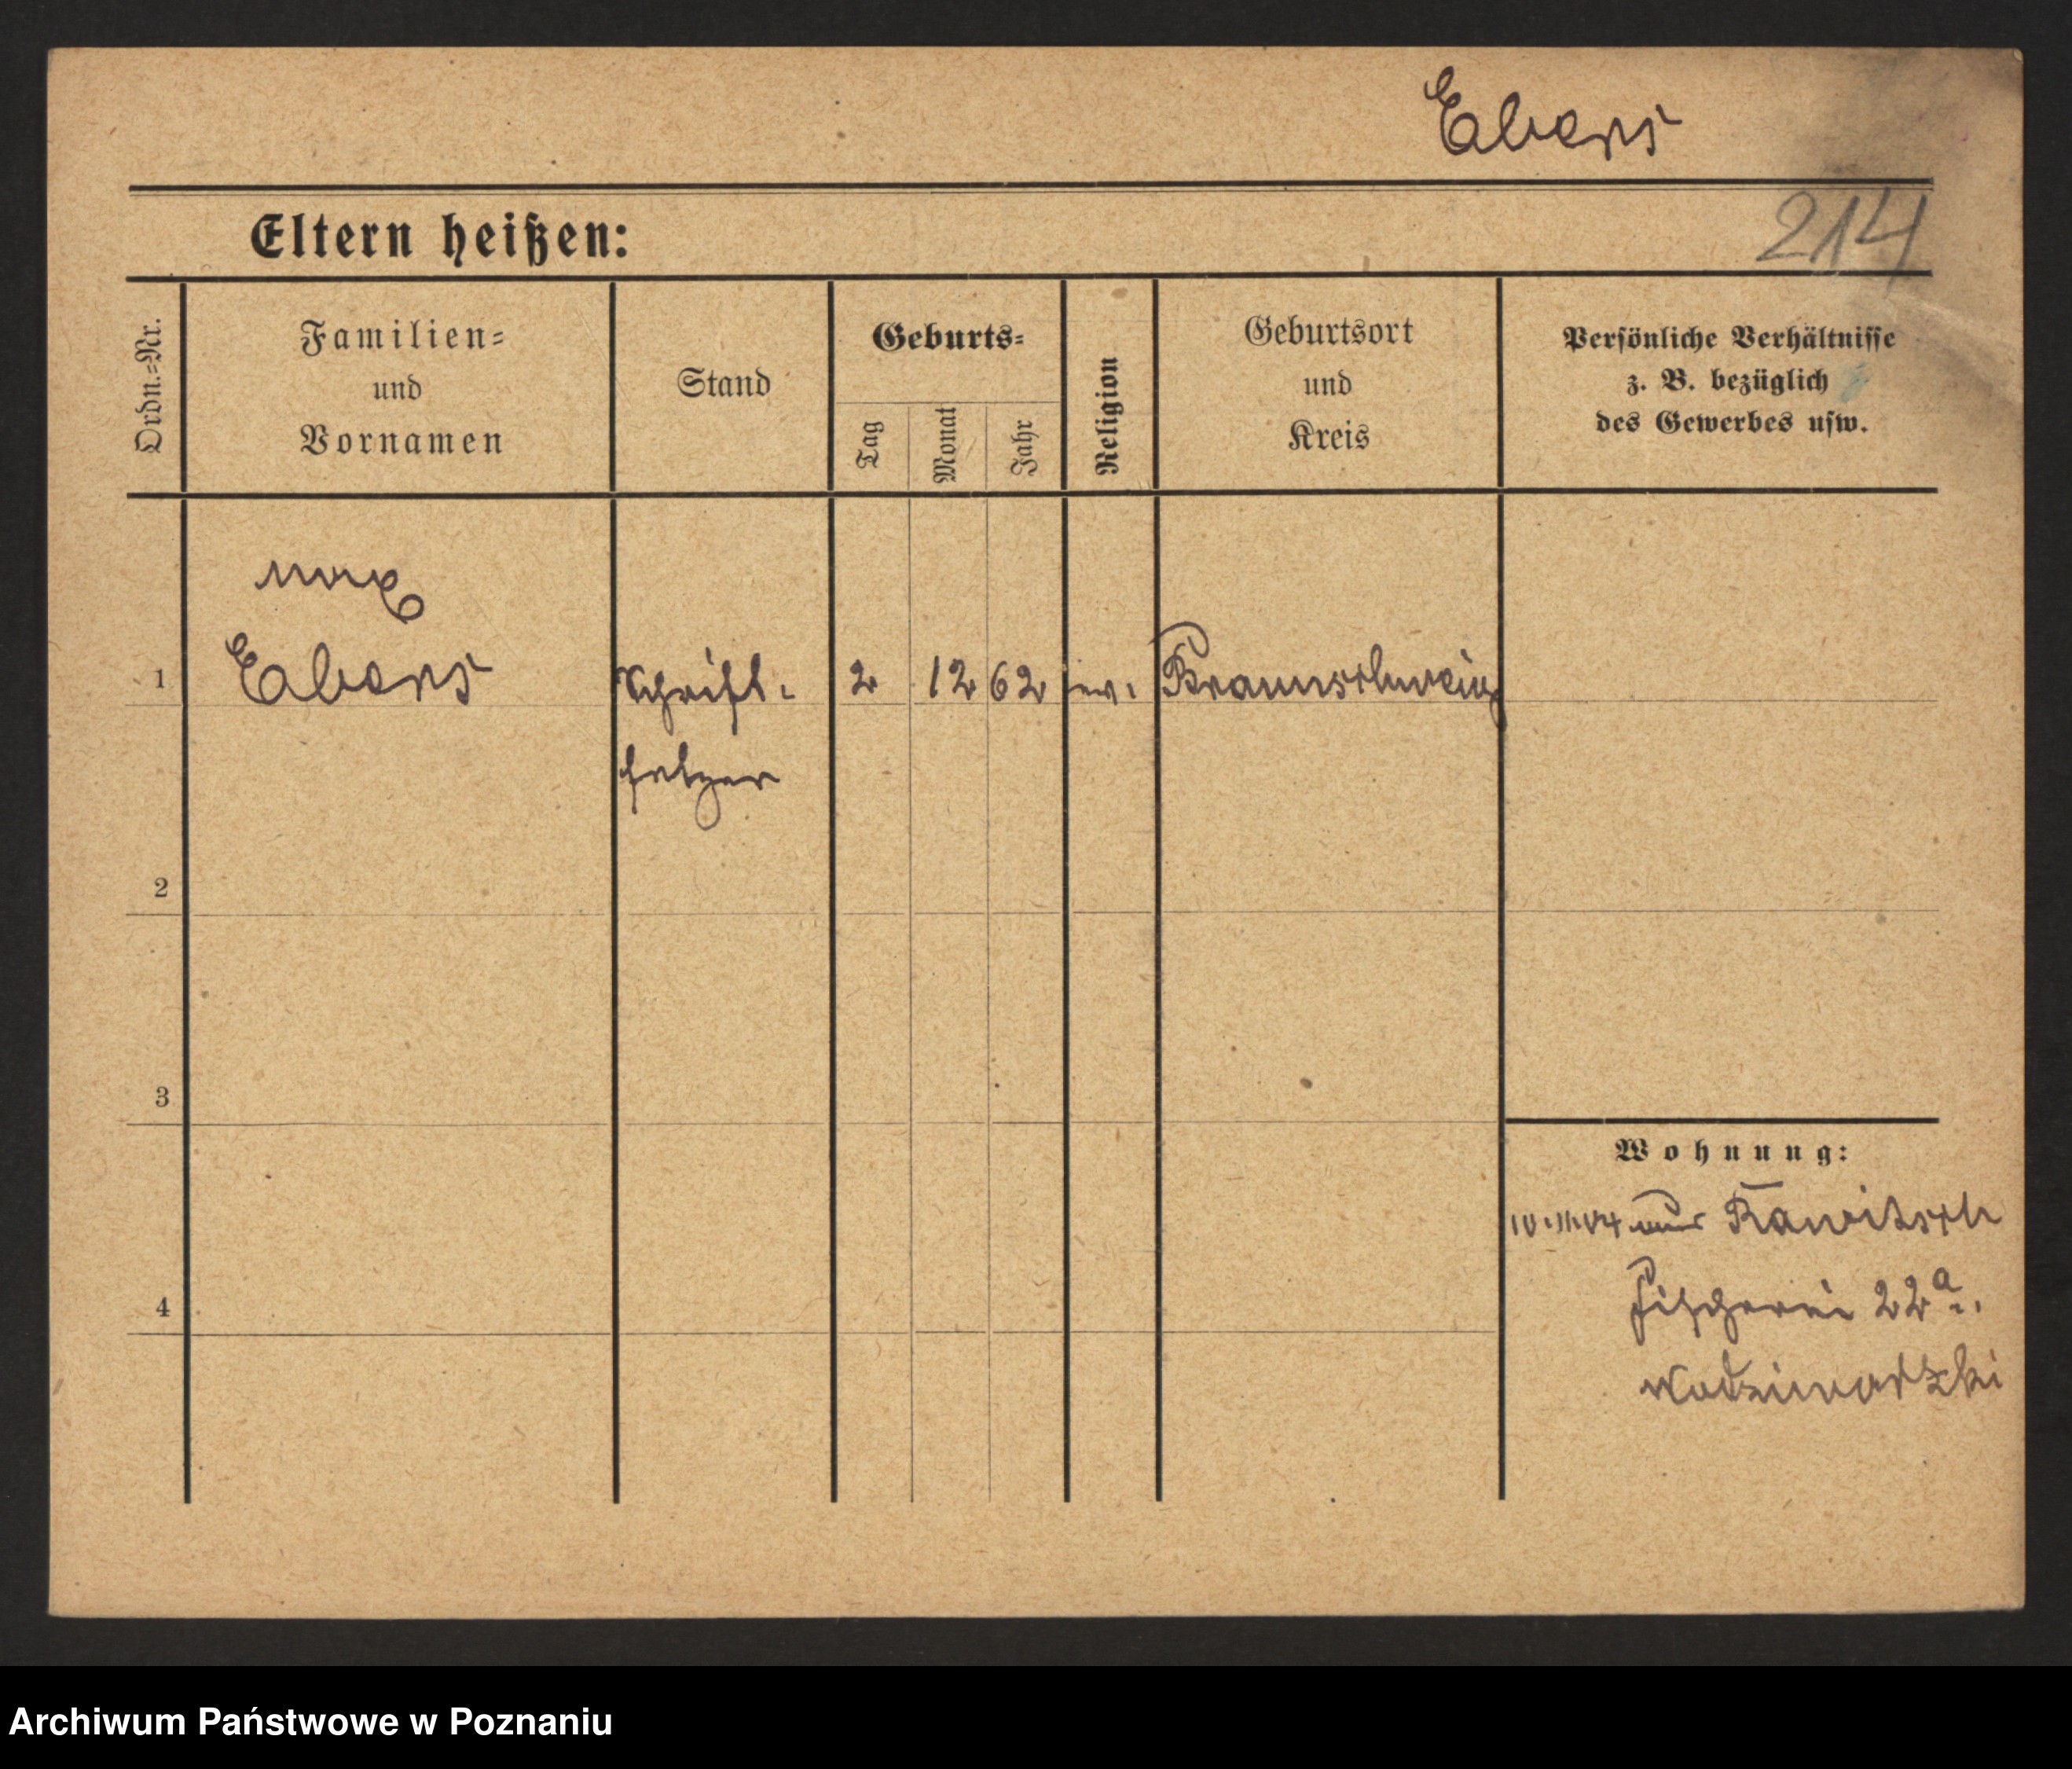 Ebers
Eltern heißen:
214
Ordn.=Nr.
Familien=
und
Vornamen
Stand
Geburts=
Tag
Monat
Jahr
Religion
Geburtsort
und
Kreis
Persönliche Verhältnisse
z. B. bezüglich
des Gewerbes usw.
Max
1 Ebers Schrift- 2 12 62 ev. Braunschweig
setzer
2
3
4
Wohnung:
aus Rawitsch
Fischerei 22a
Archiwum Państwowe w Poznaniu